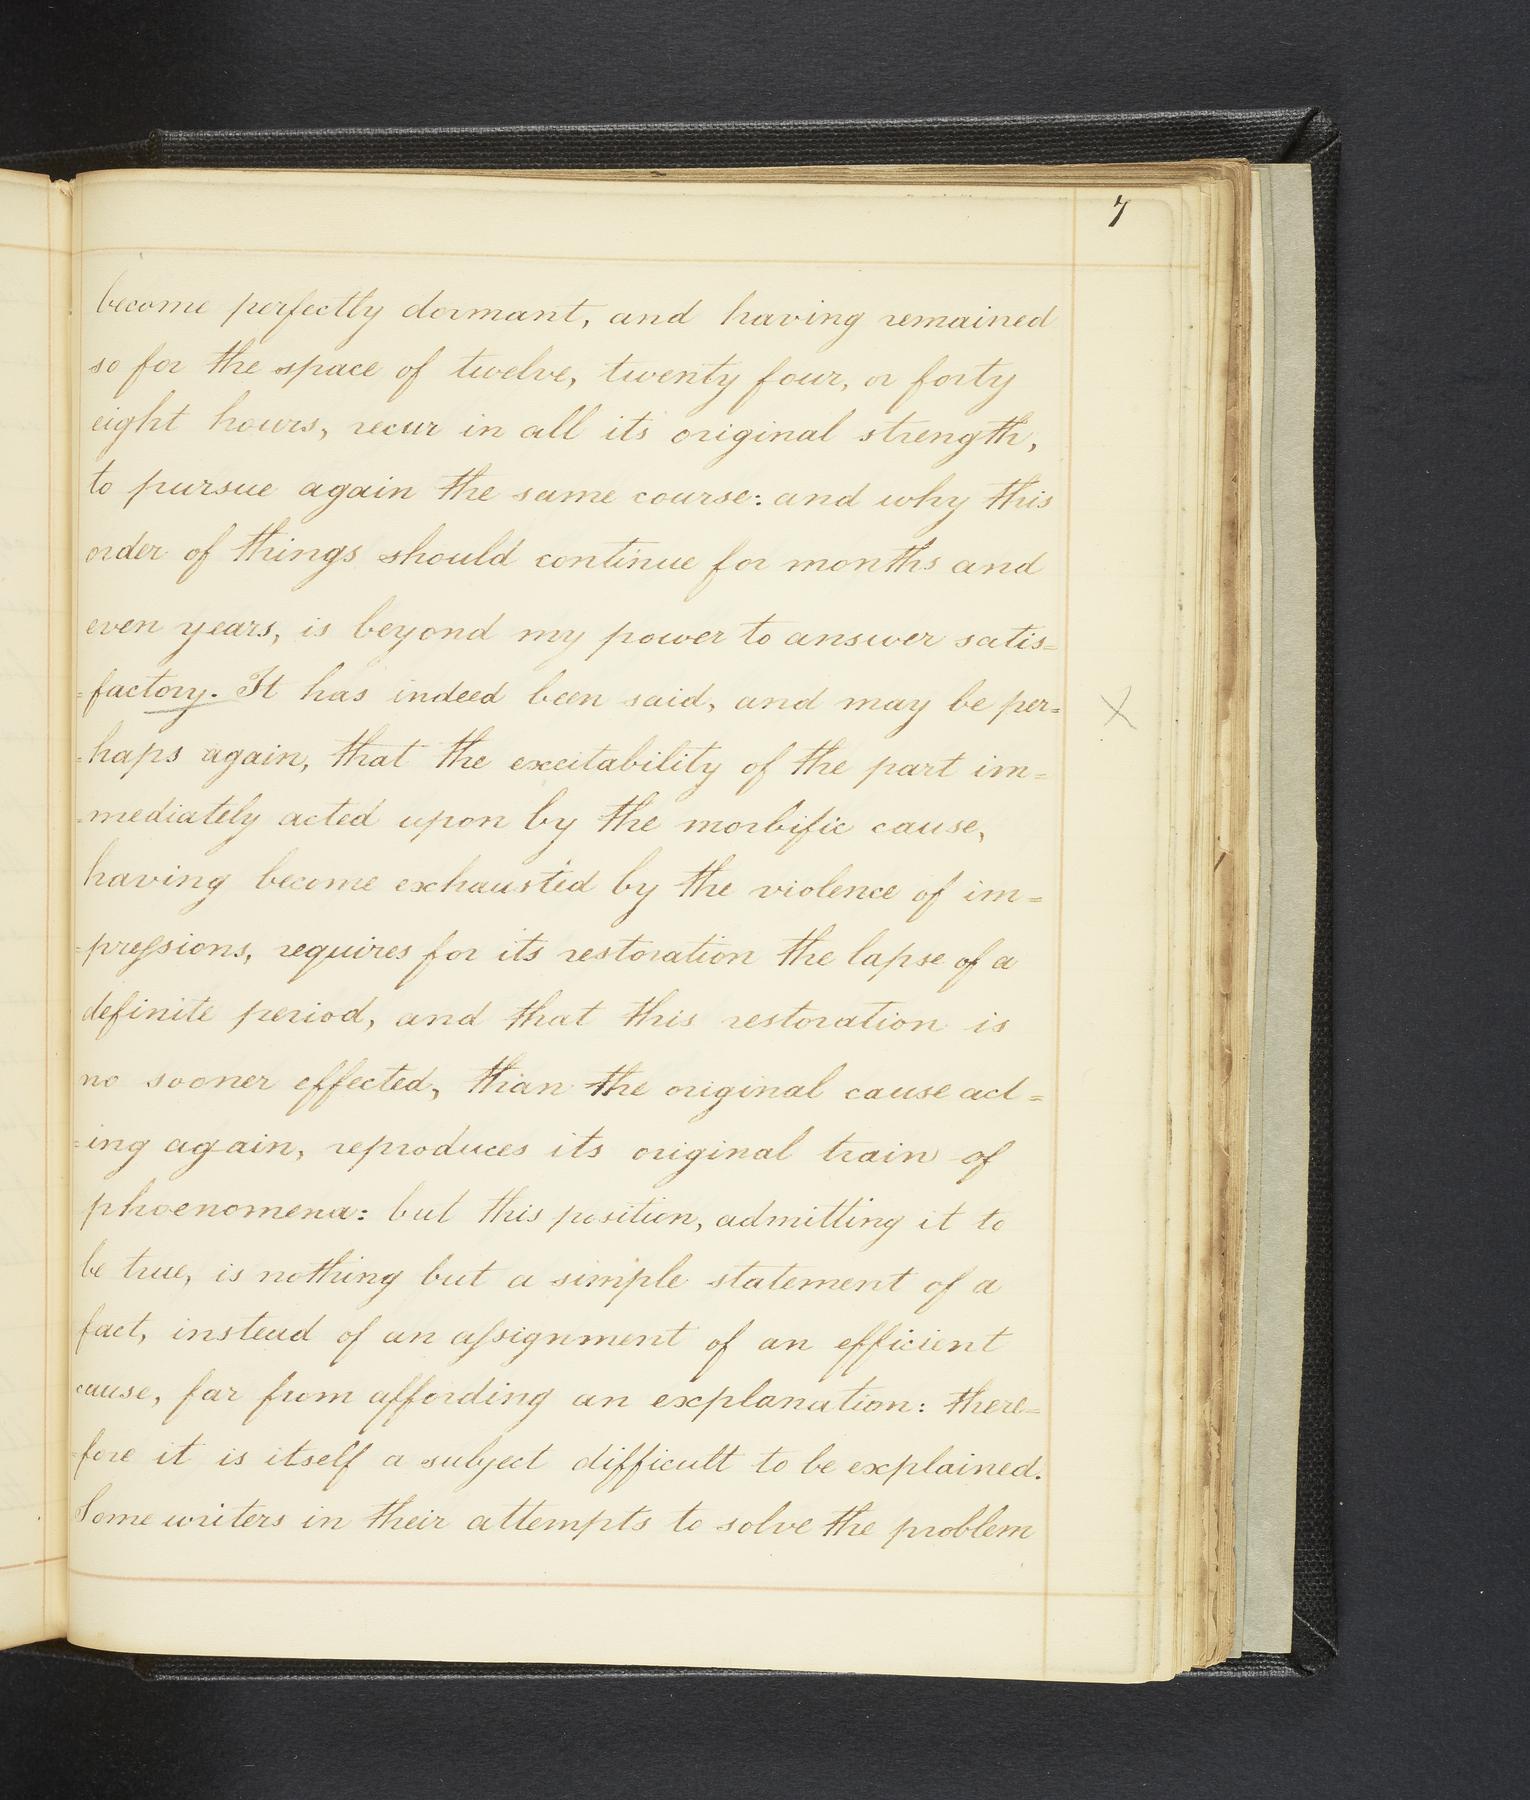 7
become perfectly dormant, and having remained
so for the space of twelve, twenty four, or forty
eight hours, recur in all its original strength,
to pursue again the same course: and why this
order of things should continue for months and
even years, is beyond my power to answer satis=
=factory. It has indeed been said, and may be per=
=haps again, that the excitability of the part im=
=mediately acted upon by the morbific cause,
having become exhausted by the violence of im=
=preſsions, requires for its restoration the lapse of a
definite period, and that this restoration is
no sooner effected, than the original cause act=
=ing again, reproduces its original train of
phoenomena: but this position, admitting it to
be true, is nothing but a simple statement of a
fact, instead of an aſsignment of an efficient
cause, far from affording an explanation: there=
=fore it is itself a subject difficult to be explained.
Some writers in their attempts to solve the problem